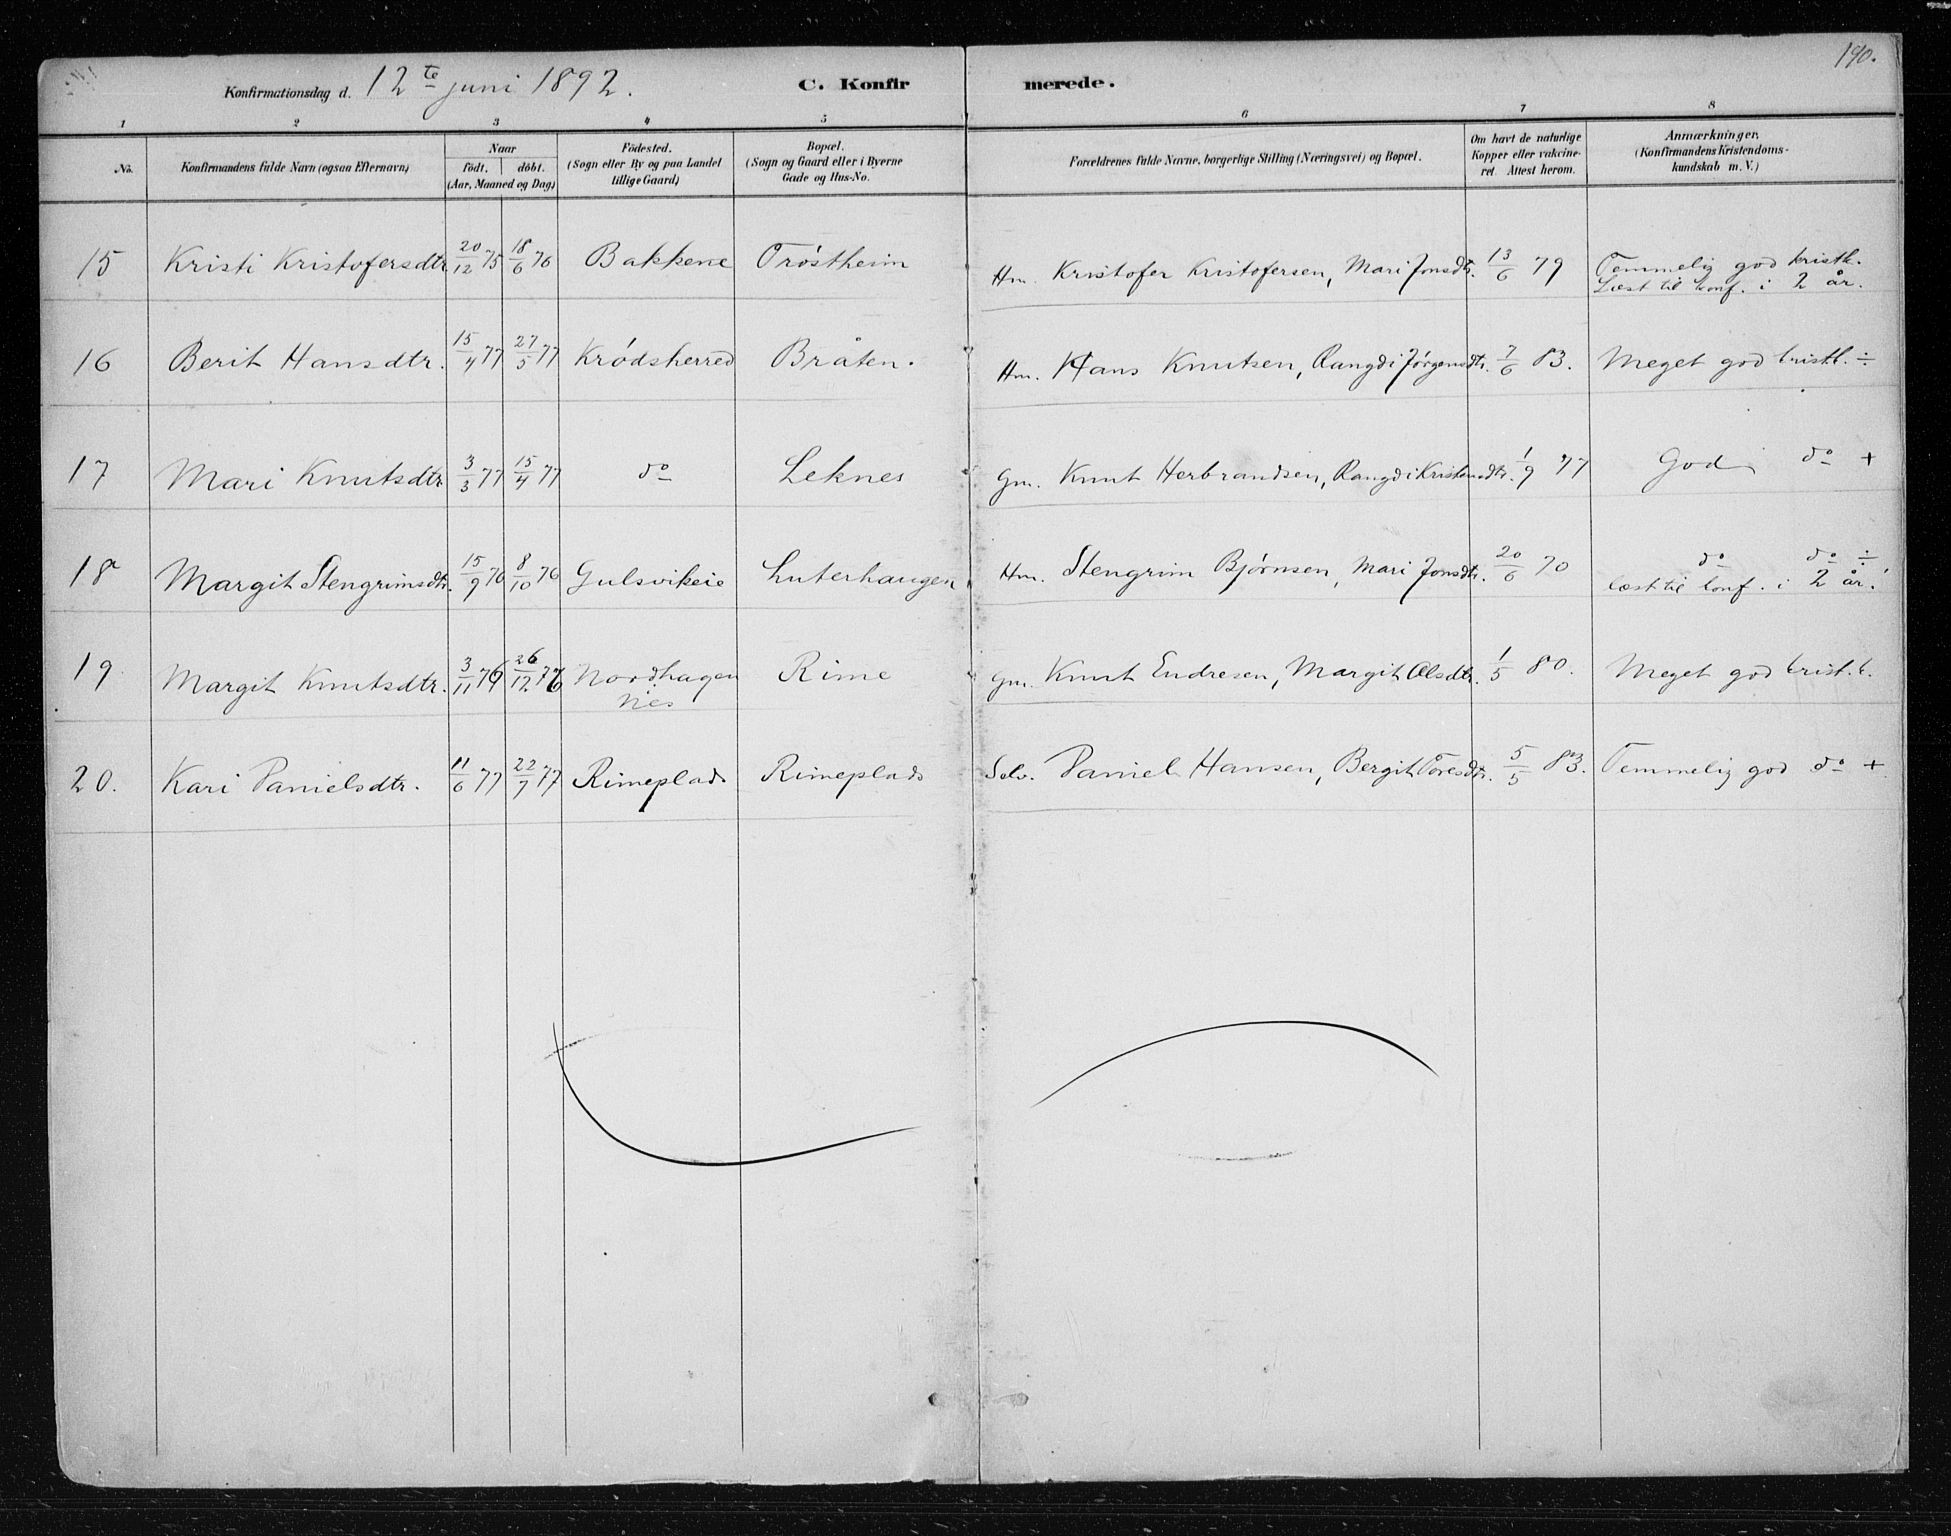 190.
Konfirmationsdag d. 12te juni 1892. C. Konfirmerede.
1 2 3 4 5 6 7 8
No. Konfirmandens fulde Navn (ogsaa Efternavn) Naar födt. döbt. (Aar, Maaned og Dag) Födested. (Sogn eller By og paa Landet tillige Gaard) Bopæl. (Sogn og Gaard eller i Byerne Gade og Hus-No. Forældrenes fulde Navne, borgerlige Stilling (Næringsvei) og Bopæl. Om havt de naturlige Kopper eller vakcineret. Attest herom. Anmærkninger. (Konfirmandens Kristendomskundskab m. V.)
15 Kristi Kristofersdtr 20/12 75 18/6 76 Bakkene Trøstheim Hm. Kristofer Kristofersen, Mari Jonsdtr. 13/6 79 Temmelig god kristk.
Læst til konf. i 2 år.
16 Berit Hansdtr. 15/4 77 27/5 77 Krødsherred Bråten. Hm. Hans Knutsen, Rangdi Jørgensdtr. 7/6 83. Meget god kristk. ÷
17 Mari Knutsdtr. 3/3 77 15/4 77 do Leknes Gm. Knut Herbrandsen, Rangdi Kristensdtr. 1/9 77 God do +
18 Margit Stengrimsdtr. 15/9 76 8/10 76 Gulsvikeie Luterhaugen Hm. Stengrim Bjørnsen, Mari Jonsdtr. 20/6 70 do do ÷
læst til konf. i 2 år.
19. Margit Knutsdtr. 3/11 76 26/12 76 Nordhagen Rime Gm. Knut Endresen, Margit Olsdtr. 1/5 80. Meget god krist.k.
Nes
20. Kari Danielsdtr. 11/6 77 22/7 77 Rimeplads Rimeplads Selv. Daniel Hansen, Bergit Toresdtr. 5/5 83. Temmelig god do +